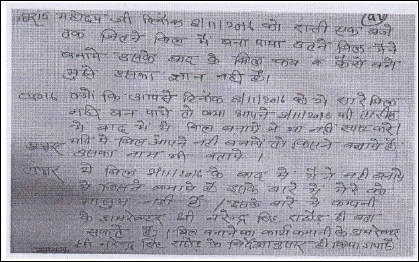 महोदय जी दिनांक 8/11/2016 को रात्री एक बजे
तक जितने बिल मैं बना पाया उतने बिल मैंने
बनाये उसके बाद के बिल कब व कैसे बने
मुझे उसका ज्ञान नहीं है।
क्यों कि आपसे दिनांक 8/11/2016 को ये सारे बिल
नहीं बन पाये तो क्या आपने 8/11/2016 की तारीख
के बाद में ये बिल बनाये थे या नहीं स्पष्ट करें।
यदि ये बिल आपने नहीं बनाये तो किसने बनाये हैं
उसका नाम भी बतायें।
उत्तर ये बिल 8/11/2016 के बाद में मैंने नहीं बनाये
ये किसने बनाये हैं इसके बारे में मेरे को
मालूम नहीं है। इसके बारे में कंपनी
के डायरेक्टर श्री नरेन्द्र सिंह राठौड़ ही बता
सकते हैं। बिल बनाने का कार्य कंपनी के डायरेक्टर
श्री नरेन्द्र सिंह राठौड़ के निर्देशानुसार ही किया गया है